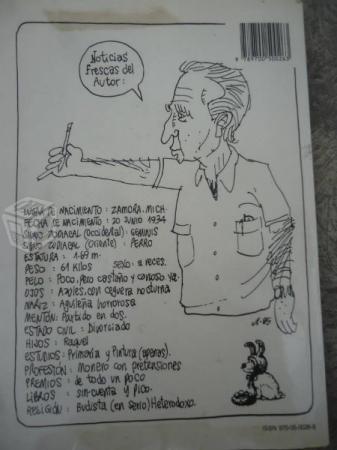 Noticias
frescas del
Autor:
9 789700 500263
LUGAR DE NACIMIENTO: ZAMORA, MICH.
FECHA DE NACIMIENTO: 20 JUNIO 1934
SIGNO ZODIACAL (OCCIDENTAL): GEMINIS
SIGNO ZODIACAL (ORIENTE): PERRO
ESTATURA: 1.69 m.
PESO: 61 Kilos SEXO: a veces.
PELO: Poco, pero castaño y canoso ya.
OJOS: Azules, con ceguera nocturna
NARIZ: Aguileña horrorosa
MENTON: Partido en dos.
ESTADO CIVIL: Divorciado
HIJOS: Raquel
ESTUDIOS: Primaria y Pintura (apenas).
PROFESIÓN: Monero con pretensiones
PREMIOS: de todo un poco
LIBROS: sin-cuenta y pico.
RELIGIÓN: Budista (en serio) Heterodoxo.
ISBN